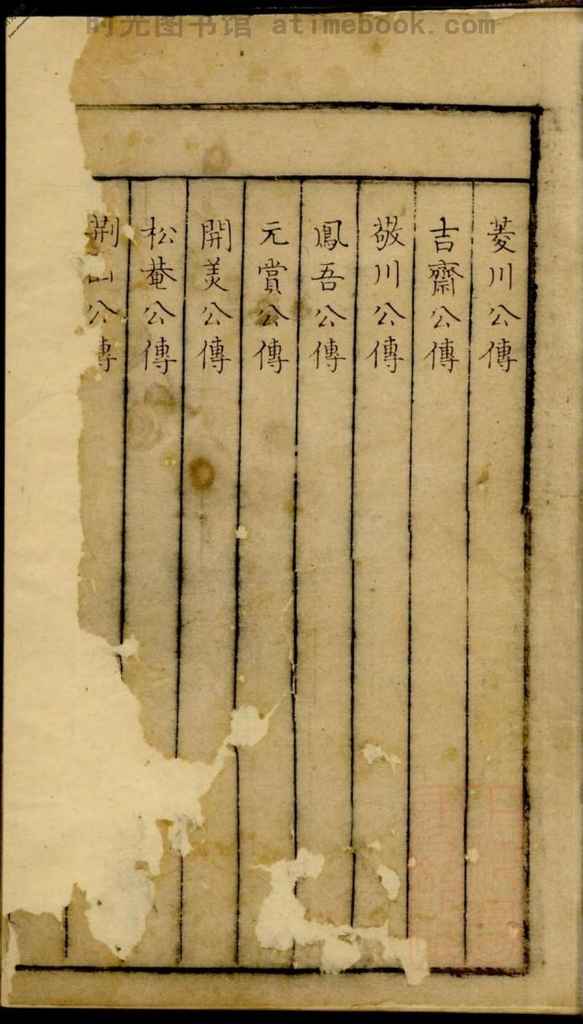 时光图书馆 atimebook.com
菱川公傳
吉齋公傳
敬川公傳
鳳吾公傳
元賞公傳
開美公傳
松菴公傳
荆山公傳